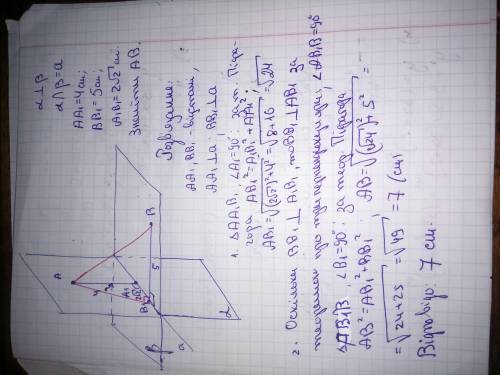 α⊥β
α∩β=a
AA₁=4см;
BB₁=5см;
A₁B₁=2√2 см.
Знайти AB.
Розв'язання:
AA₁, BB₁ - відстані,
AA₁⊥a; BB₁⊥a
1. ΔAA₁B₁, ∠A₁=90°: за т. Піфа-
гора AB₁²=A₁B₁²+AA₁²;
AB₁=√(2√2)²+4²=√8+16=√24
2. Оскільки BB₁⊥A₁B₁, то BB₁⊥AB₁ за
теоремою про три перпендикуляри, ∠AB₁B=90°
ΔAB₁B, ∠B₁=90°: за теор. Піфагора
AB²=AB₁²+BB₁²   AB=√(√24)²+5²=
=√24+25=√49=7 (см)
Відповідь: 7 см.
A
4
A₁
2√2
B₁
5
B
β
a
α